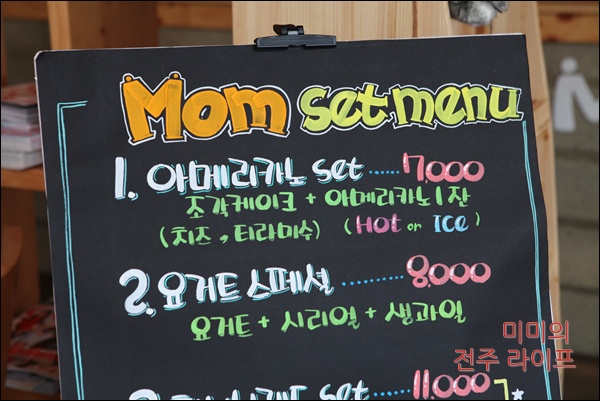 Mom set menu
1. 아메리카노 set ...... 7,000
조각케이크 + 아메리카노 1잔
(치즈, 티라미수) (Hot or ICE)
2. 요거트 스페셜 ...... 8,000
요거트 + 시리얼 + 생과일
set ...... 11,000
미미의
전주 라이프